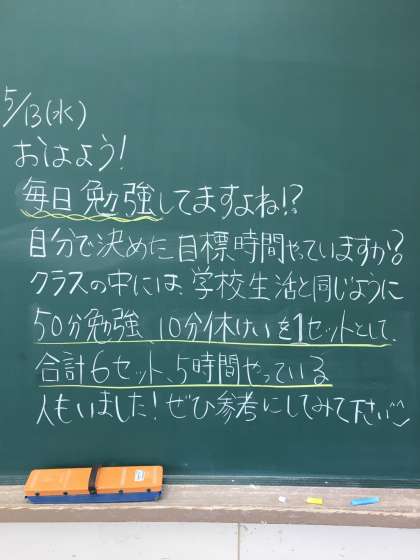 5/13(水)
おはよう!
毎日勉強してますよね!?
自分で決めた目標時間やっていますか?
クラスの中には、学校生活と同じように
50分勉強、10分休けいを1セットとして、
合計6セット、5時間やっている
人もいました!ぜひ参考にしてみて下さい^^